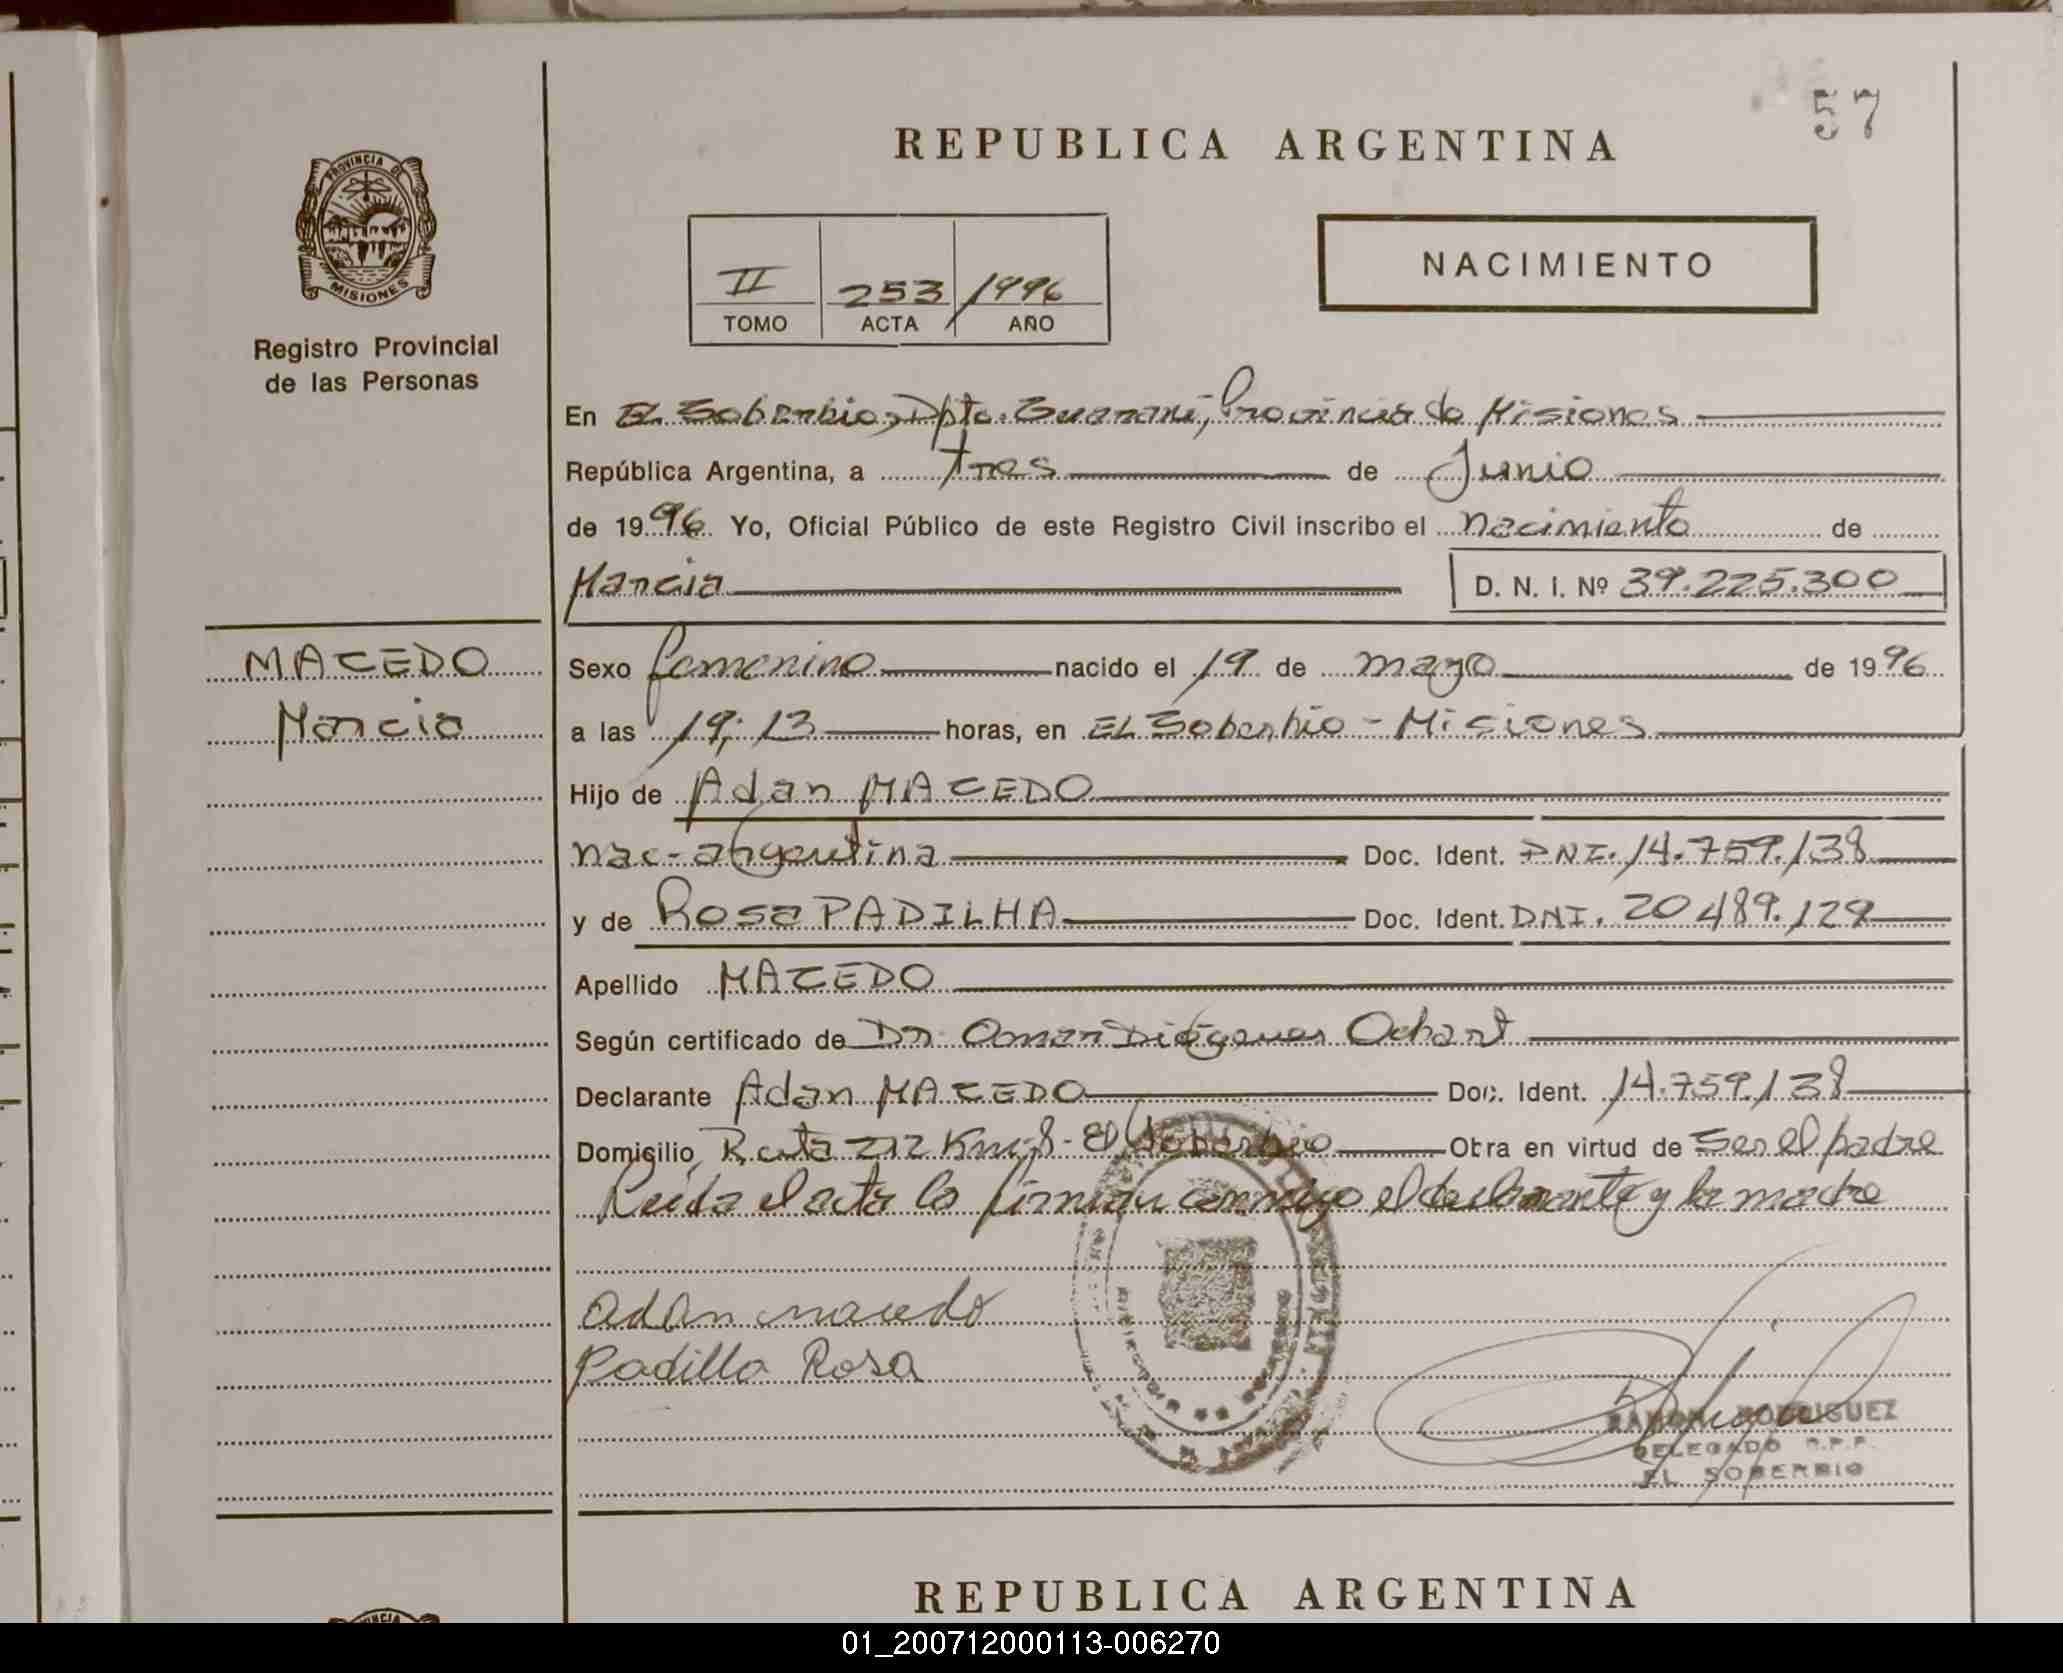 57
REPUBLICA ARGENTINA
PROVINCIA DE
MISIONES
Registro Provincial
de las Personas
II 253 / 1996
TOMO ACTA AÑO
NACIMIENTO
En EL Soberbio, Dpto. Guaraní, Provincia de Misiones
República Argentina, a tres de Junio
de 1996 Yo, Oficial Público de este Registro Civil inscribo el nacimiento de
Marcia D. N. I. Nº 39.225.300
MACEDO
Marcia
Sexo femenino nacido el 19 de mayo de 1996
a las 19:13 horas, en EL Soberbio - Misiones
Hijo de Adan MACEDO
nac- argentina Doc. Ident. DNI. 14.759.138
y de Rosa PADILHA Doc. Ident. DNI. 20 489.128
Apellido MACEDO
Según certificado de Dr. Omar Diógenes Ochart
Declarante Adan MACEDO Doc. Ident. 14.759.138
Domicilio Ruta 212 Km-8- El Soberbio Obra en virtud de ser el padre
Leída el acta la firman conmigo el declarante y la madre
adan macedo
Padilla Rosa
RAMON RODRIGUEZ
DELEGADO R.P.P.
EL SOBERBIO
REPUBLICA ARGENTINA
01_200712000113-006270